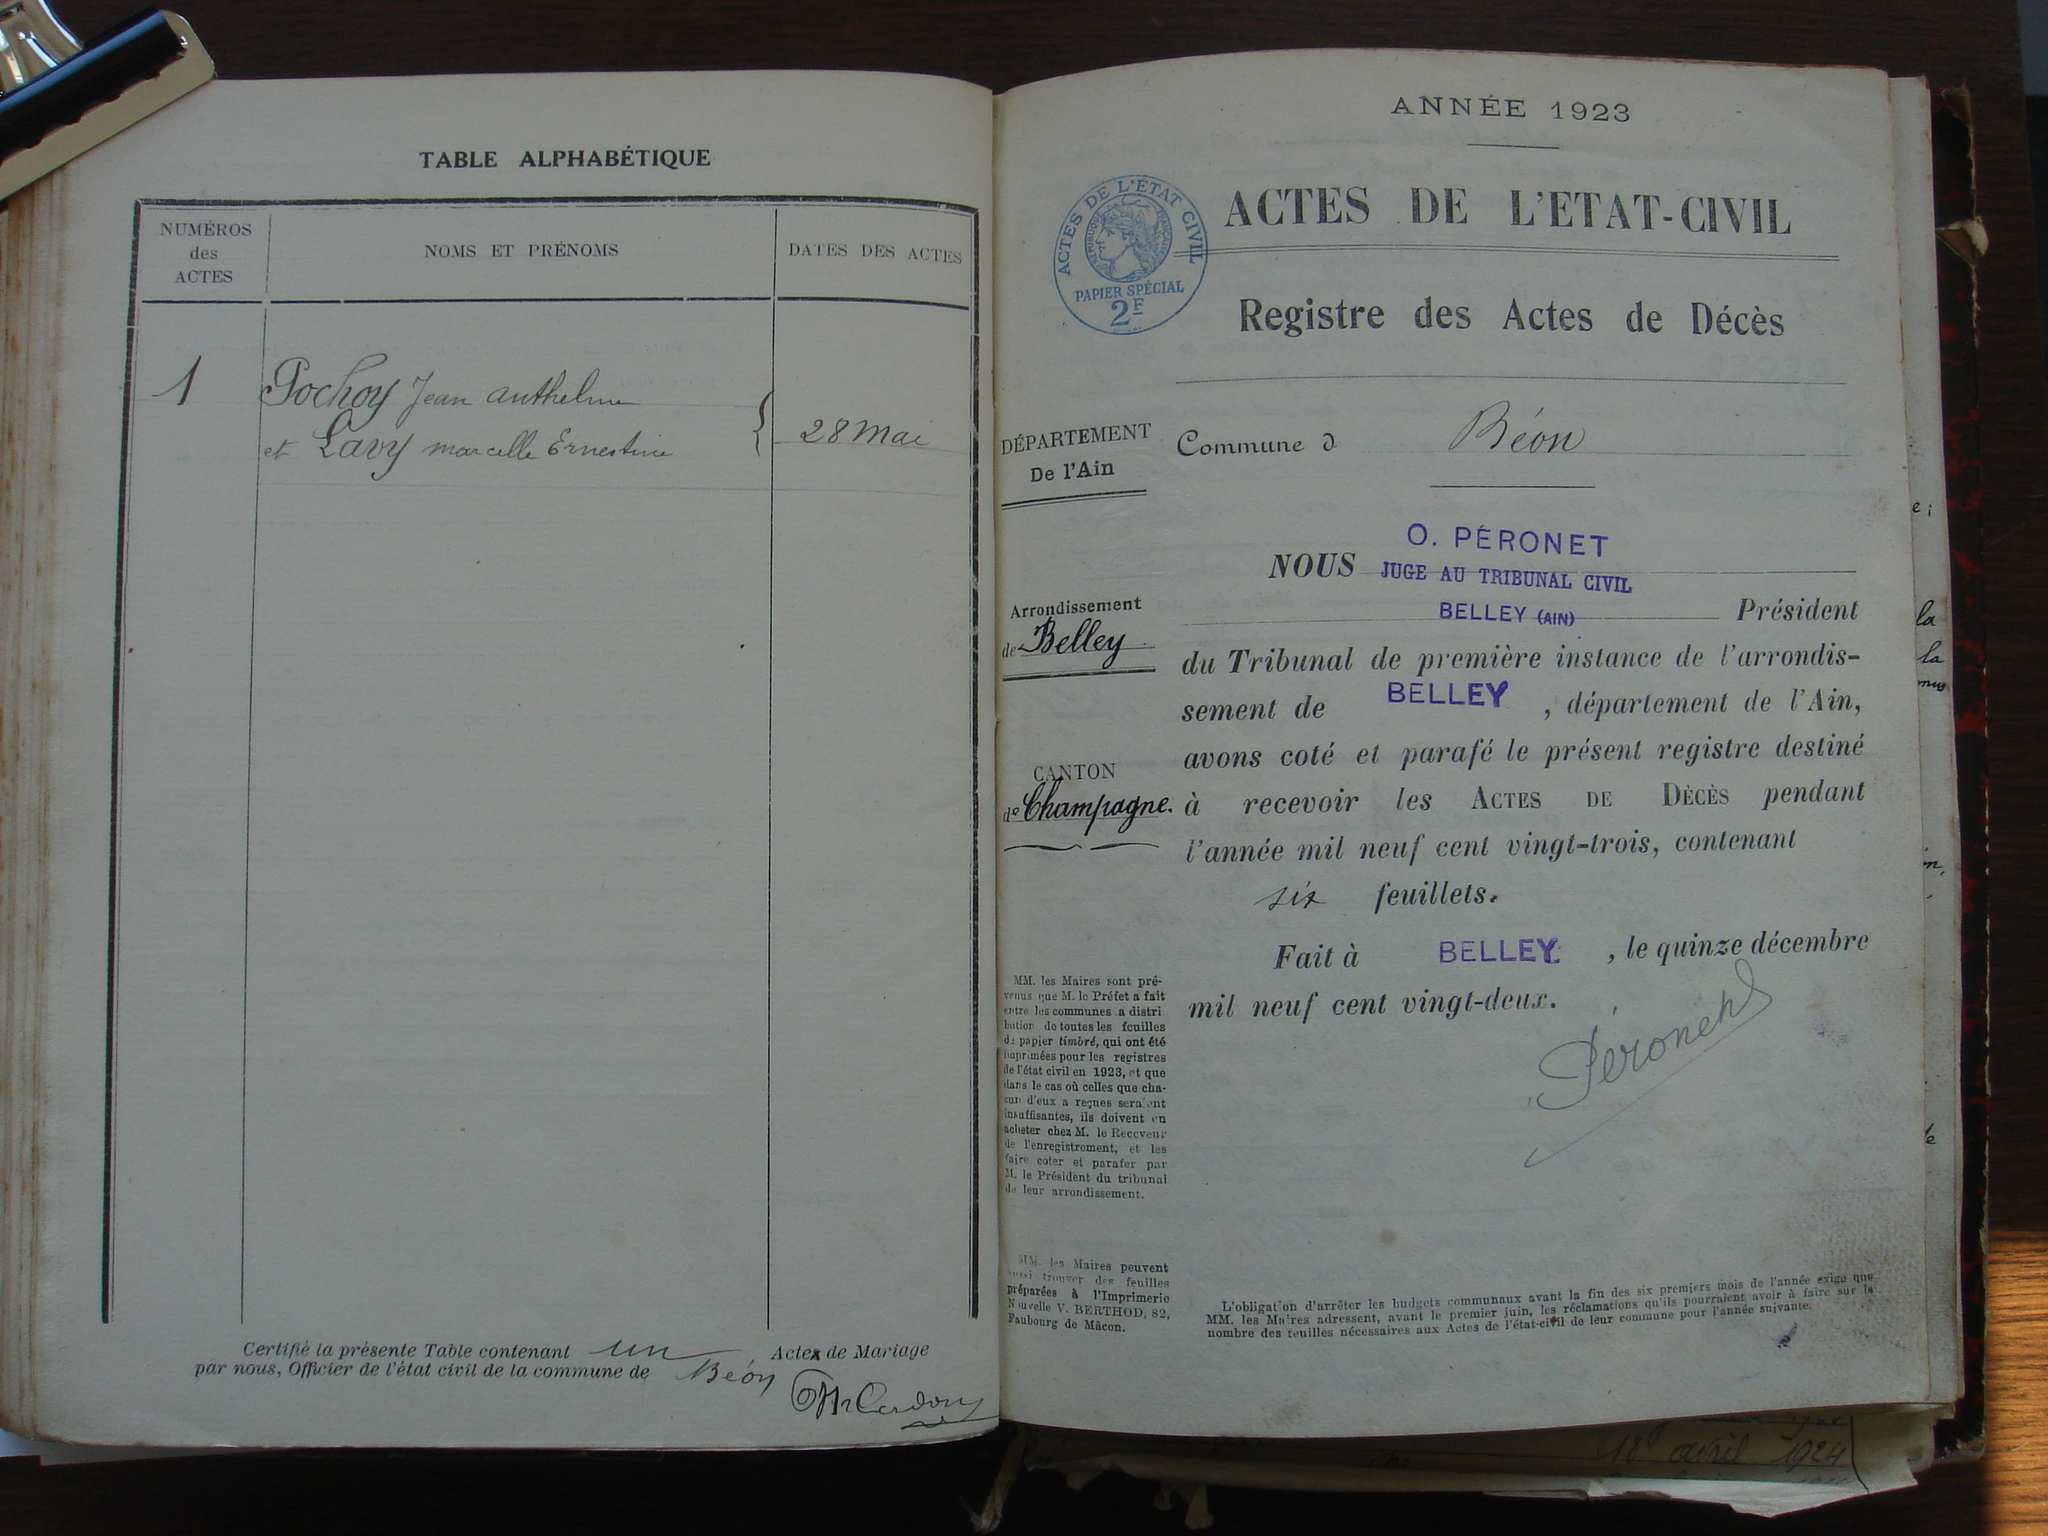 TABLE ALPHABÉTIQUE
NUMÉROS
des
ACTES
NOMS ET PRÉNOMS
DATES DES ACTES
1
Pochoy Jean Anthelme
et Lavy Marcelle Ernestine
28 Mai
Certifié la présente Table contenant un Actex de Mariage
par nous, Officier de l'état civil de la commune de Béon
ANNÉE 1923
ACTES DE L'ÉTAT CIVIL
RÉPUBLIQUE FRANÇAISE
PAPIER SPÉCIAL
2F
ACTES DE L'ETAT-CIVIL
Registre des Actes de Décès
DÉPARTEMENT
De l'Ain
Commune d Béon
Arrondissement
de Belley
CANTON
de Champagne.
O. PÉRONET
NOUS JUGE AU TRIBUNAL CIVIL
BELLEY (AIN) Président
du Tribunal de première instance de l'arrondis-
sement de BELLEY, département de l'Ain,
avons coté et parafé le présent registre destiné
à recevoir les ACTES DE DÉCÈS pendant
l'année mil neuf cent vingt-trois, contenant
six feuillets.
Fait à BELLEY, le quinze décembre
mil neuf cent vingt-deux.
Péronet
MM. les Maires sont pré-
venus que M. le Préfet a fait
entre les communes la distri
bution de toutes les feuilles
de papier timbré, qui ont été
imprimées pour les registres
de l'état civil en 1923, et que
dans le cas où celles que cha-
cun d'eux a reçues seraient
insuffisantes, ils doivent en
acheter chez M. le Receveur
de l'enregistrement, et les
faire coter et parafer par
M. le Président du tribunal
de leur arrondissement.
MM. les Maires peuvent
aussi trouver des feuilles
préparées à l'Imprimerie
Nouvelle V. BERTHOD, 82,
Faubourg de Mâcon.
L'obligation d'arrêter les budgets communaux avant la fin des six premiers mois de l'année exige que
MM. les Maires adressent, avant le premier juin, les réclamations qu'ils pourraient avoir à faire sur le
nombre des feuilles nécessaires aux Actes de l'état-civil de leur commune pour l'année suivante.
la
la
18 avril 1924